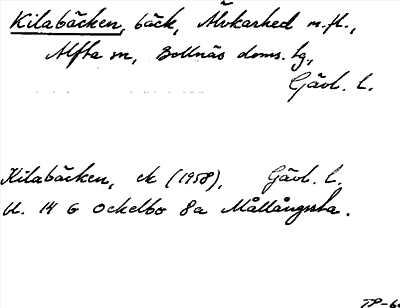 Kilabäcken, bäck, Älvkarhed m.fl.,
Alfta sn, Bollnäs doms. tg,
Gävl. L.
Kilabäcken, ek (1958), Gävl. L.
bl. 14 G Ockelbo 8a Mållångssta.